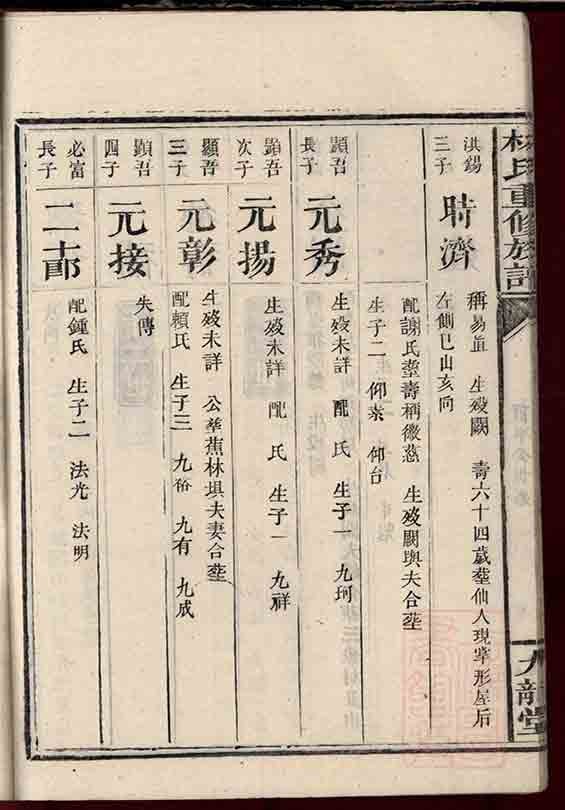 林氏重修族譜
九龍堂
洪錫
三子
時濟
稱易直 生殁闕 壽六十四歲塟仙人現掌形屋后
左側巳山亥向
配謝氏塟壽稱徽慈 生殁闕與夫合塟
生子二 仰 仰台
顯吾
長子
元秀
生殁未詳 配 氏 生子一 九珂
顯吾
次子
元揚
生殁未詳 配 氏 生子一 九祥
顯吾
三子
元彰
生殁未詳 公塟蕉林垻夫妻合塟
配賴氏 生子三 九裕 九有 九成
顯吾
四子
元接
失傳
必富
長子
二十郎
配鍾氏 生子二 法光 法明